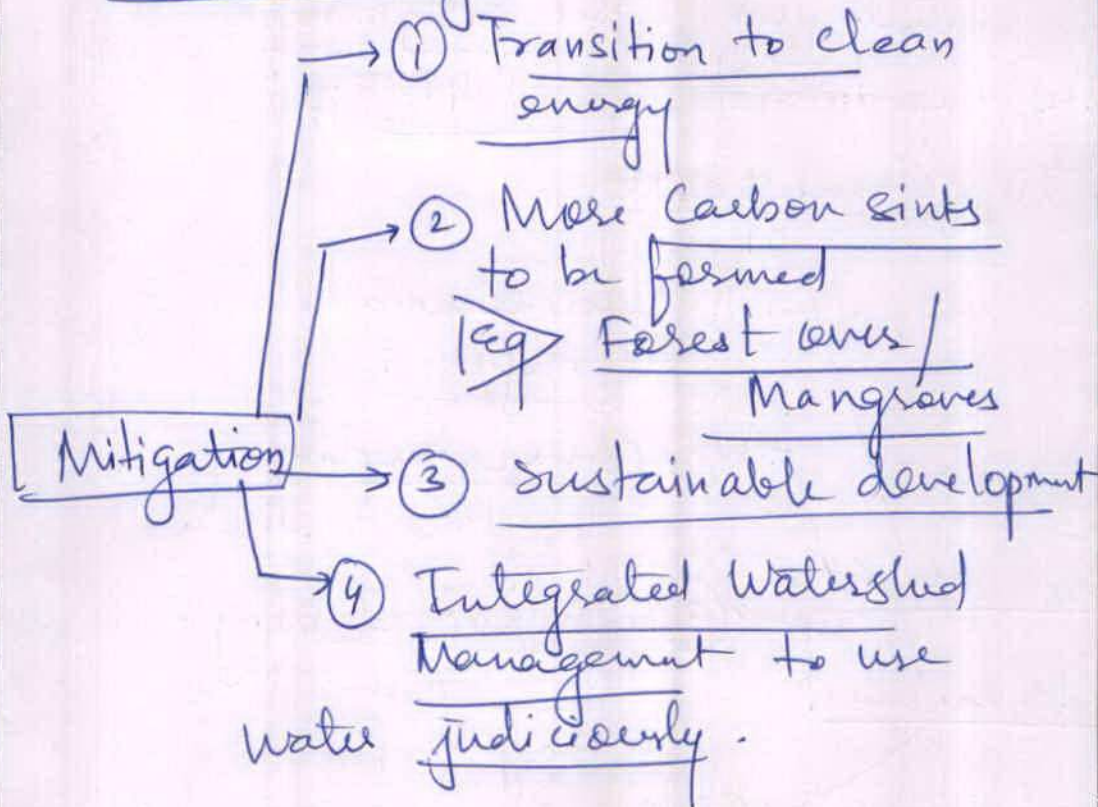 ① Transition to clean
energy
② More Carbon sinks
to be formed
Eg Forest cover /
Mangroves
Mitigation
③ sustainable development
④ Integrated Watershed
Management to use
water judiciously.